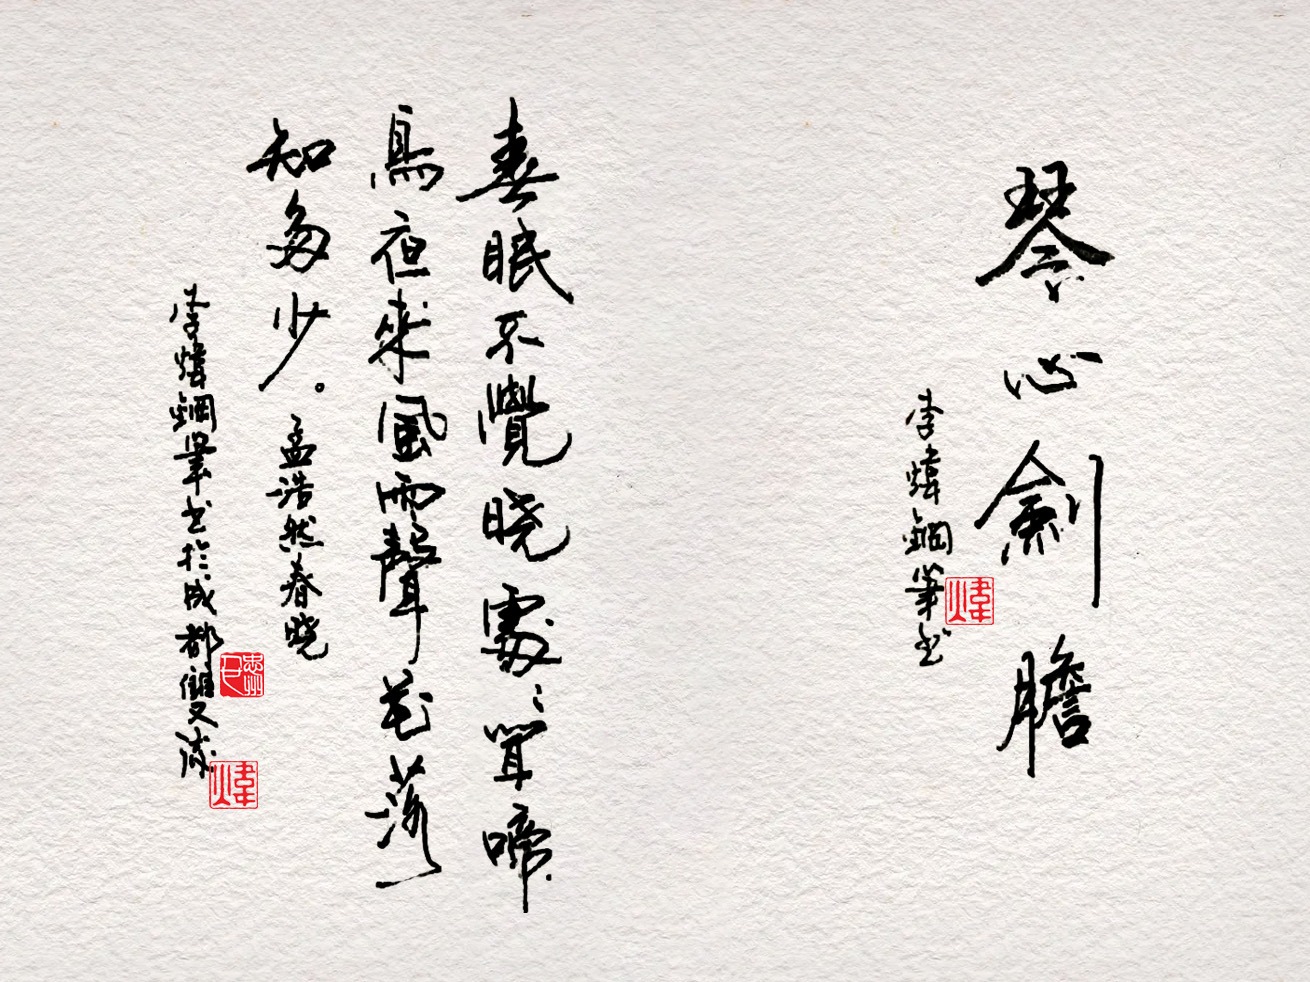 琴心劍膽
李煒鋼筆书
煒
春眠不覺晓處〻聞啼
鳥夜來風雨聲花落
知多少。
孟浩然春晓
李煒鋼筆书於成都雙流
煒